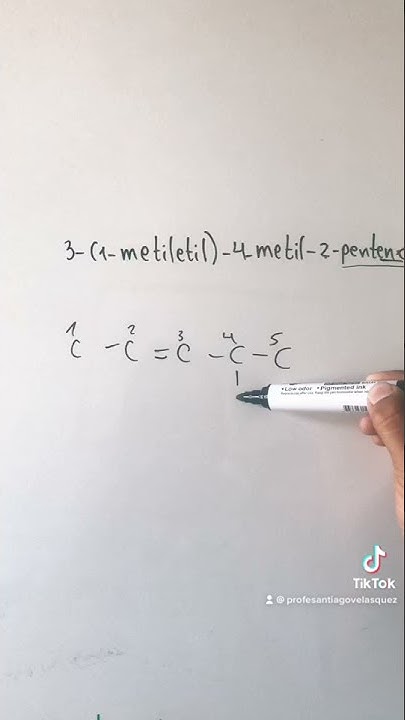 3-(1-metiletil)-4-metil-2-penten
1 2 3 4 5
C - C = C - C - C
|
• Low odor • Pigmented ink
TikTok
@profesantiagovelasquez